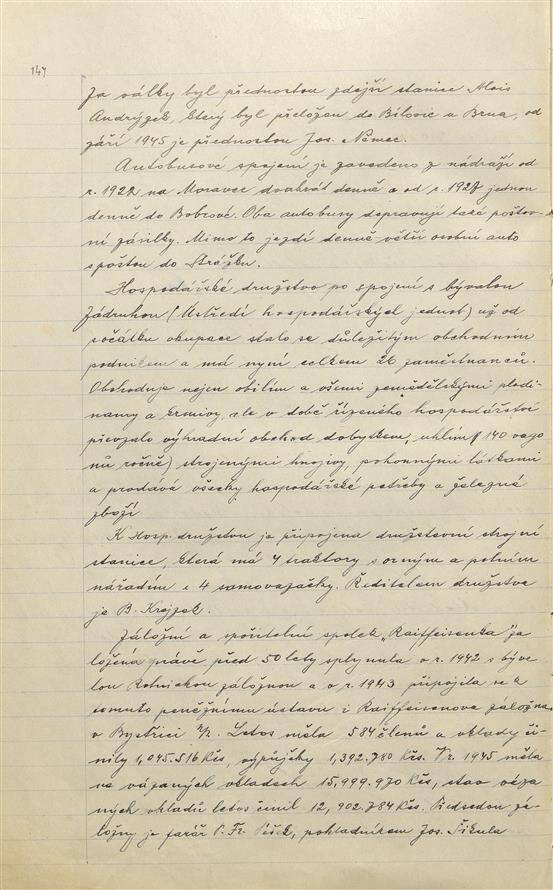 147
Za války byl přednostou zdejší stanice Alois
Andrýzek, který byl přeložen do Bílovic u Brna, od
září 1945 je přednostou Jos. Němec.
Autobusové spojení je zavedeno z nádraží od
r. 1922 na Moravec dvakrát denně a od r. 1927 jednou
denně do Bobrové. Oba autobusy dopravují také poštov-
ní zásilky. Mimo to jezdí denně větší osobní auto
s poštou do Strážku.
Hospodářské družstvo po spojení s bývalou
Zádruhou (Ústředí hospodářských jednot) už od
počátku okupace stalo se důležitým obchodním
podnikem a má nyní celkem 26 zaměstnanců.
Obchoduje nejen obilím a všemi zemědělskými plodi-
namy a krmivy, ale v době řízeného hospodářství
převzalo výhradní obchod dobytkem, uhlím (140 vago
nů ročně) strojenými hnojivy, pohonnými látkami
a prodává všecky hospodářské potřeby a železné
zboží
K Hosp. družstvu je připojena družstevní strojní
stanice, která má 4 traktory s orným a polním
nářadím a 4 samovazačky. Ředitelem družstva
je B. Krejzek.
Záložní a spořitelní spolek „Raiffeisenka" za
ložená právě před 50 lety splynula v r. 1942 s býva
lou Rolnickou záložnou a v r. 1943 připojila se k
tomuto peněžnímu ústavu i Raiffeisenova záložna
v Bystřici n/P. Letos měla 584 členů a vklady či-
nily 1,045.516 Kčs, výpůjčky 1,392.780 Kčs. V r. 1945 měla
na vázaných vkladech 15,999.970 Kčs, stav váza
ných vkladů letos činil 12,902.784 Kčs. Předsedou zá-
ložny je farář P. Fr. Pešek, pokladníkem Jos. Šikula